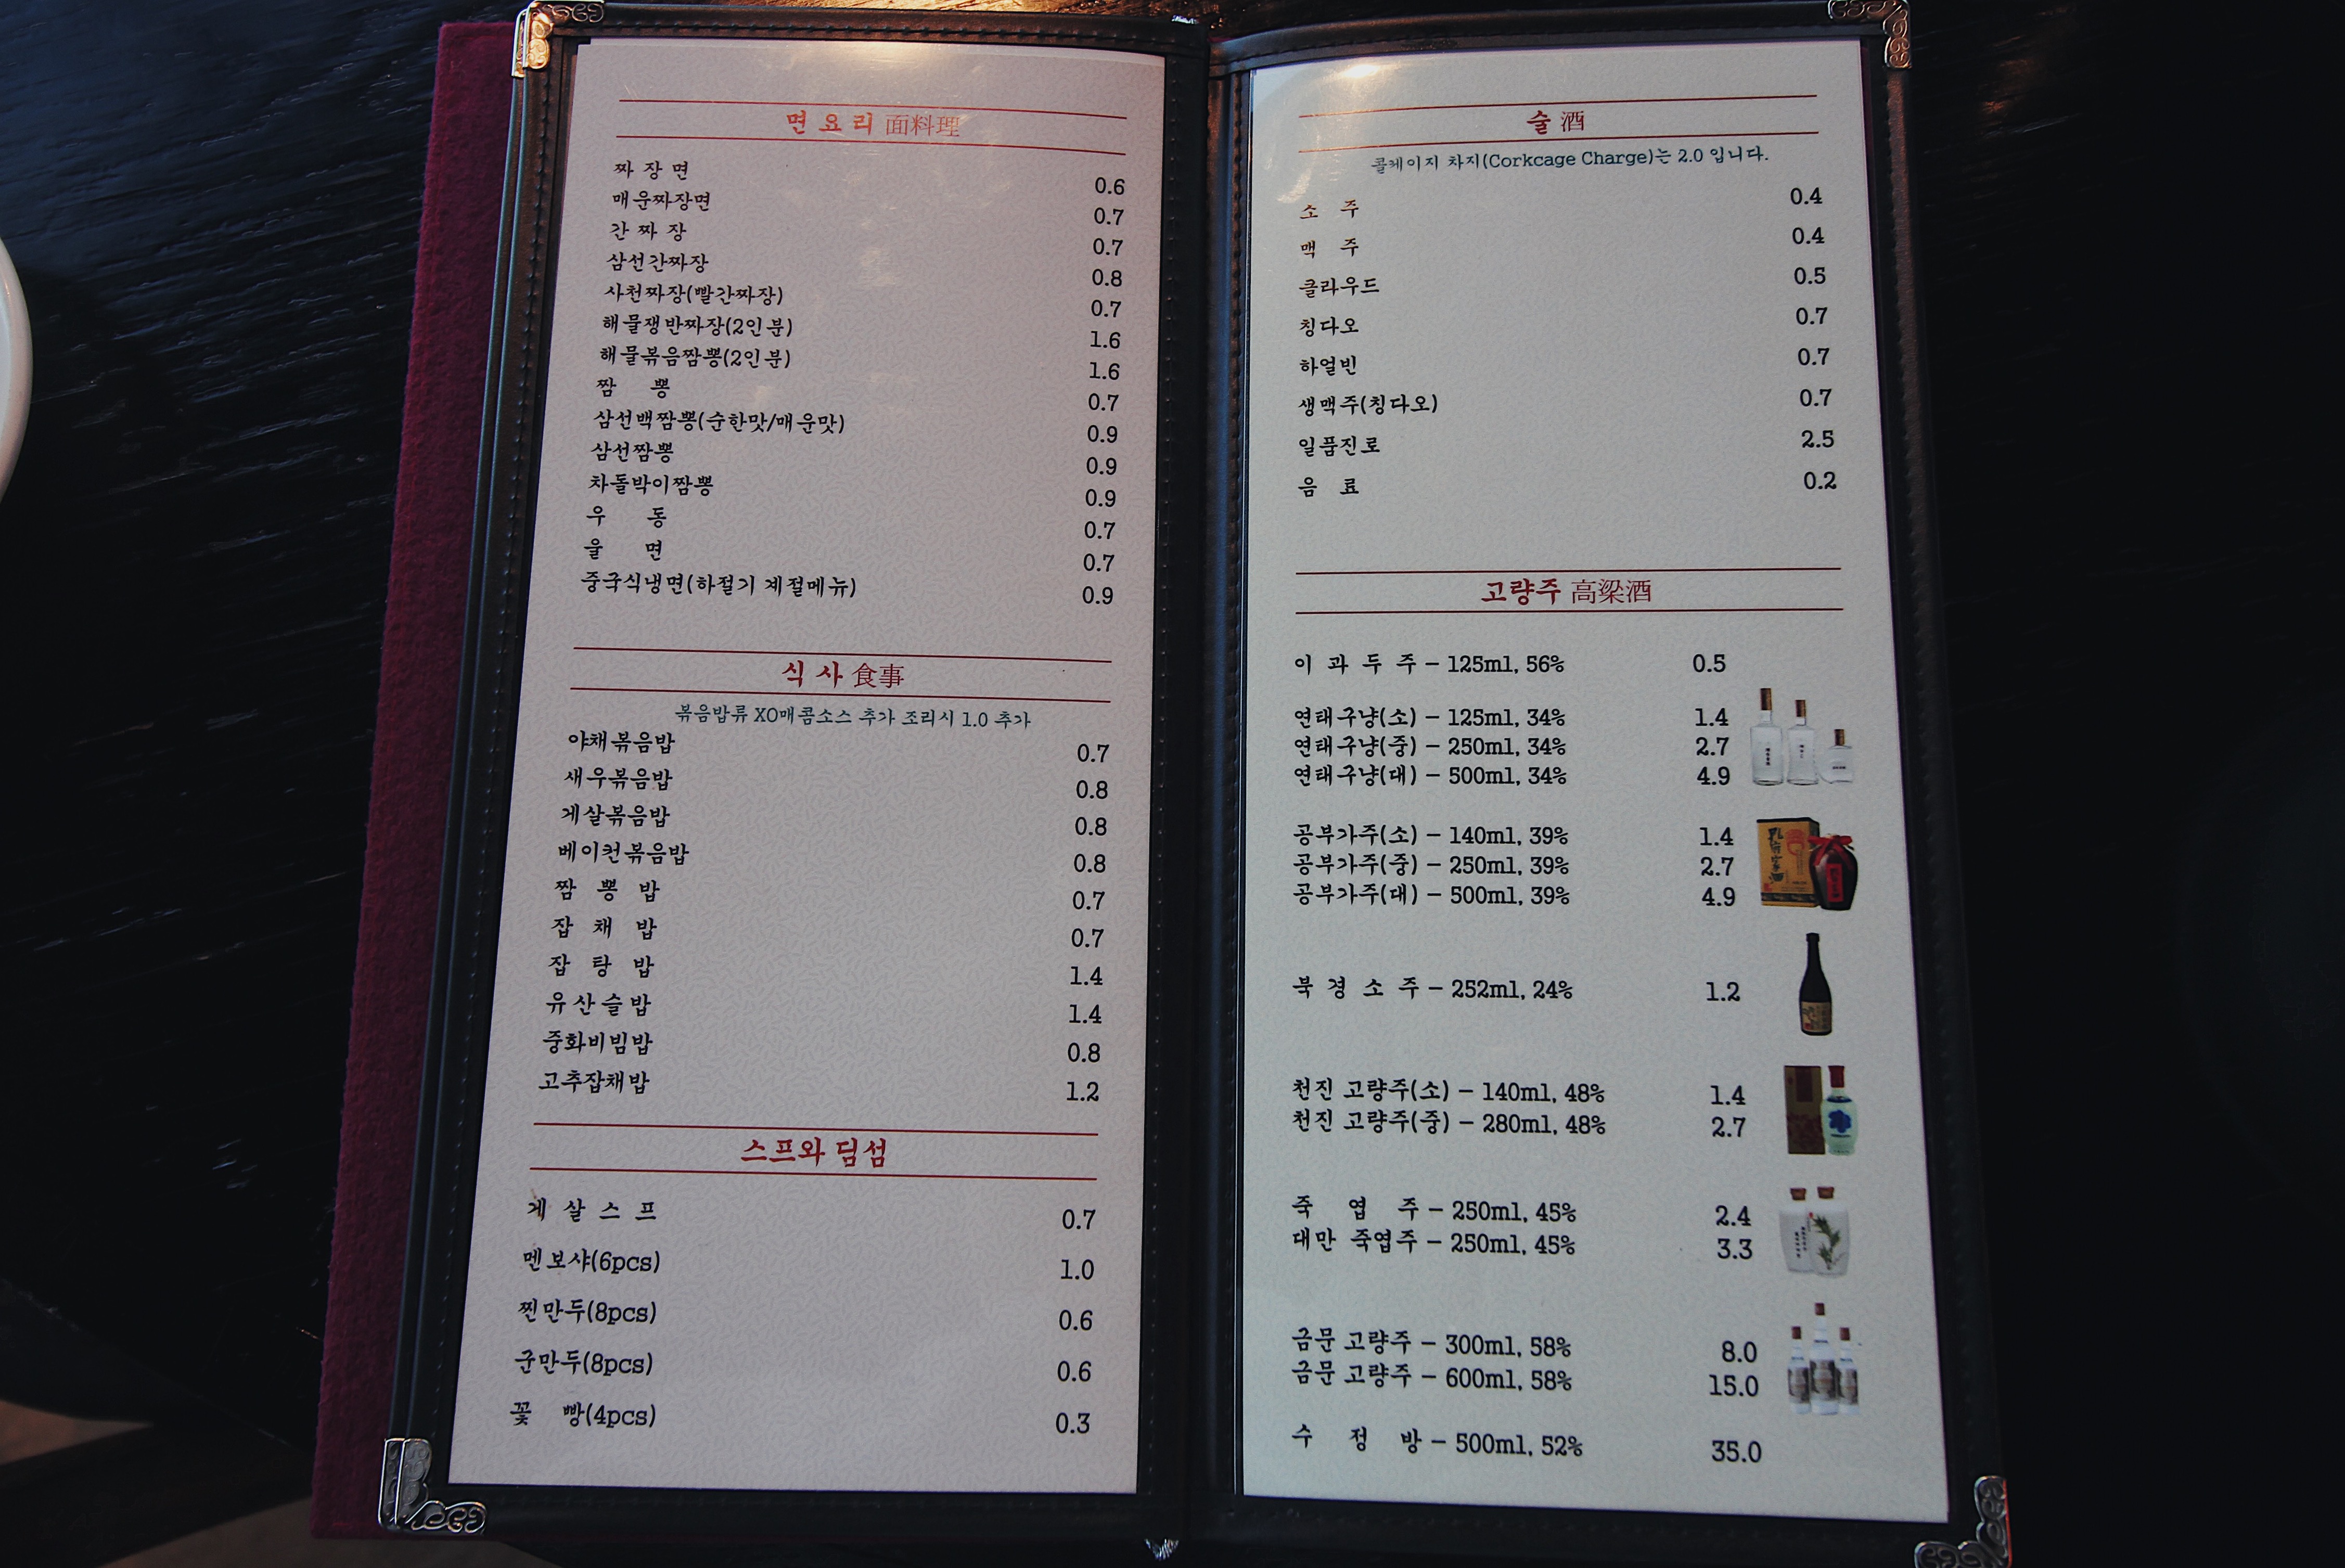 면 요 리 面料理
짜 장 면 0.6
매운짜장면 0.7
간 짜 장 0.7
삼선간짜장 0.8
사천짜장(빨간짜장) 0.7
해물쟁반짜장(2인분) 1.6
해물볶음짬뽕(2인분) 1.6
짬 뽕 0.7
삼선백짬뽕(순한맛/매운맛) 0.9
삼선짬뽕 0.9
차돌박이짬뽕 0.9
우 동 0.7
울 면 0.7
중국식냉면(하절기 계절메뉴) 0.9
식 사 食事
볶음밥류 XO매콤소스 추가 조리시 1.0 추가
야채볶음밥 0.7
새우볶음밥 0.8
게살볶음밥 0.8
베이컨볶음밥 0.8
짬 뽕 밥 0.7
잡 채 밥 0.7
잡 탕 밥 1.4
유산슬밥 1.4
중화비빔밥 0.8
고추잡채밥 1.2
스프와 딤섬
게 살 스 프 0.7
멘보샤(6pcs) 1.0
찐만두(8pcs) 0.6
군만두(8pcs) 0.6
꽃 빵(4pcs) 0.3
술 酒
콜케이지 차지(Corkcage Charge)는 2.0 입니다.
소 주 0.4
맥 주 0.4
클라우드 0.5
칭다오 0.7
하얼빈 0.7
생맥주(칭다오) 0.7
일품진로 2.5
음 료 0.2
고량주 高梁酒
이 과 두 주 – 125ml, 56% 0.5
연태구냥(소) – 125ml, 34% 1.4
연태구냥(중) – 250ml, 34% 2.7
연태구냥(대) – 500ml, 34% 4.9
공부가주(소) – 140ml, 39% 1.4
공부가주(중) – 250ml, 39% 2.7
공부가주(대) – 500ml, 39% 4.9
북 경 소 주 – 252ml, 24% 1.2
천진 고량주(소) – 140ml, 48% 1.4
천진 고량주(중) – 280ml, 48% 2.7
죽 엽 주 – 250ml, 45% 2.4
대만 죽엽주 – 250ml, 45% 3.3
금문 고량주 – 300ml, 58% 8.0
금문 고량주 – 600ml, 58% 15.0
수 정 방 – 500ml, 52% 35.0